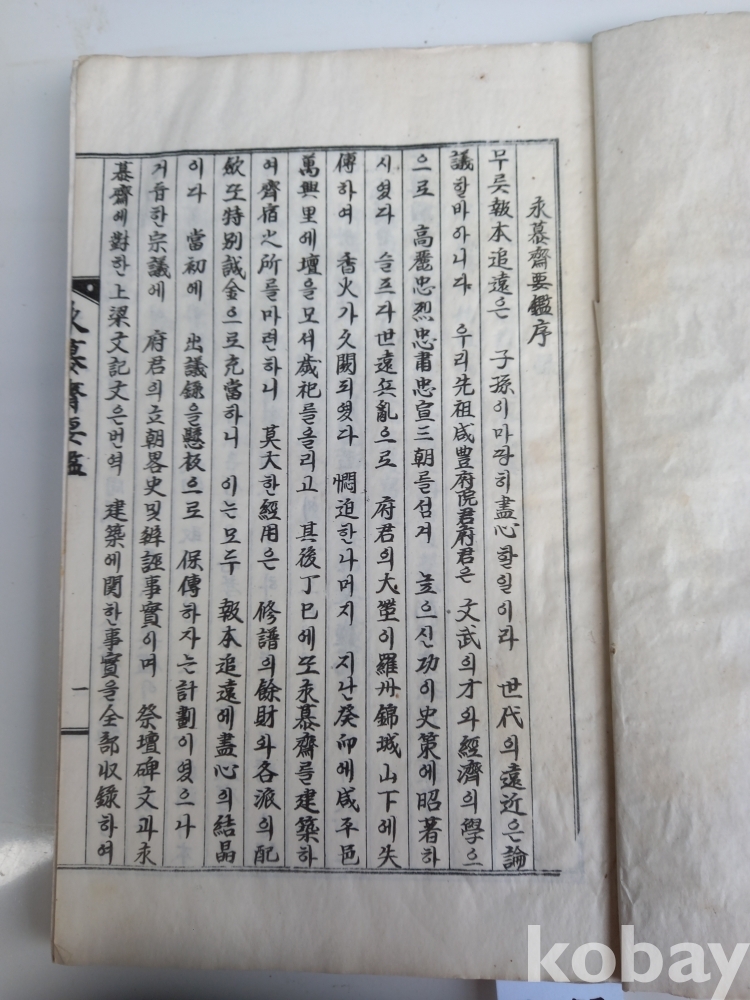 永慕齋要鑑序
무릇報本追遠은 子孫이마땅히盡心할일이라 世代의遠近은論
議할바아니다 우리先祖咸豊府院君府君은 文武의才와經濟의學으
으로 高麗忠烈忠肅忠宣三朝를섬겨 높으신功이史策에昭著하
시였다 슬프다世遠兵亂으로 府君의大塋이羅州錦城山下에失
傳하여 香火가久闕되였다 憫迫한나머지 지난癸卯에咸平邑
萬興里에壇을모셔歲祀를올리고 其後丁巳에또永慕齋를建築하
여齊宿之所를마련하니 莫大한經用은 修譜의餘財와各派의配
斂또特別誠金으로充當하니 이는모두 報本追遠에盡心의結晶
이다 當初에 出議錄을懸板으로 保傳하자는計劃이였으나
거듭한宗議에 府君의立朝畧史및辨誣事實이며 祭壇碑文과永
慕齋에對한上梁文記文은번역 建築에関한事實을全部収録하여
永慕齋要鑑
一
kobay